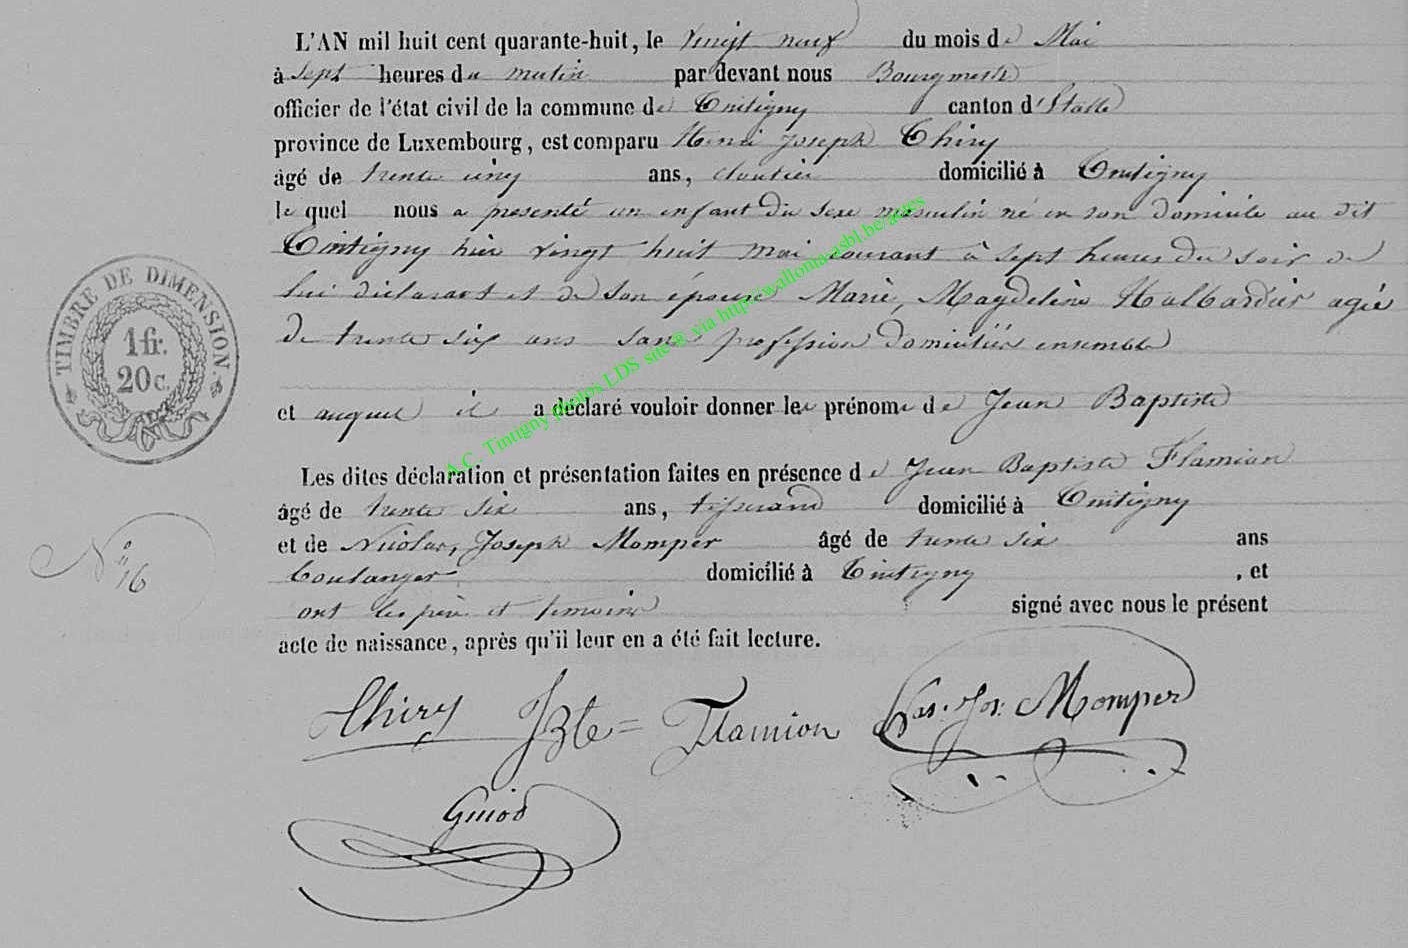 L'AN mil huit cent quarante-huit, le vingt neuf du mois de Mai
à sept heures du matin par devant nous Bourgmestre
officier de l'état civil de la commune de Tintigny canton d'Etalle
province de Luxembourg, est comparu Henri Joseph Thiry
âgé de trente cinq ans, cloutier domicilié à Tintigny
le quel nous a presenté un enfant du sexe masculin né en son domicile au dit
Tintigny hier vingt huit mai courant à sept heures du soir de
lui déclarant et de son épouse Marie, Magdeleine Halbardier agée
de trente six ans sans profession domiciliés ensemble
et auquel il a déclaré vouloir donner les prénoms de Jean Baptiste
Les dites déclaration et présentation faites en présence de Jean Baptiste Flamion
âgé de trente six ans, tisserand domicilié à Tintigny
et de Nicolas, Joseph Momper âgé de trente six ans
boulanger domicilié à Tintigny , et
ont les père et temoins signé avec nous le présent
acte de naissance, après qu'il leur en a été fait lecture.
TIMBRE DE DIMENSION.
1 fr.
20 c.
N° 16
Thiry JBte = Flamion Nas. Jos: Momper
Guiod
A.C. Tintigny photos LDS site @ via http://wallonia-asbl.be/actes